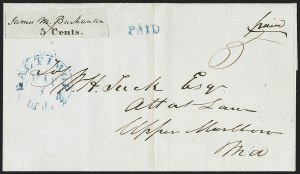 James M. Buchanan
5 Cents.
PAID
paid
5
BALTIMORE
Md.
To W. H. Tuck Esq
Att at Law
Upper Marlboro
Md